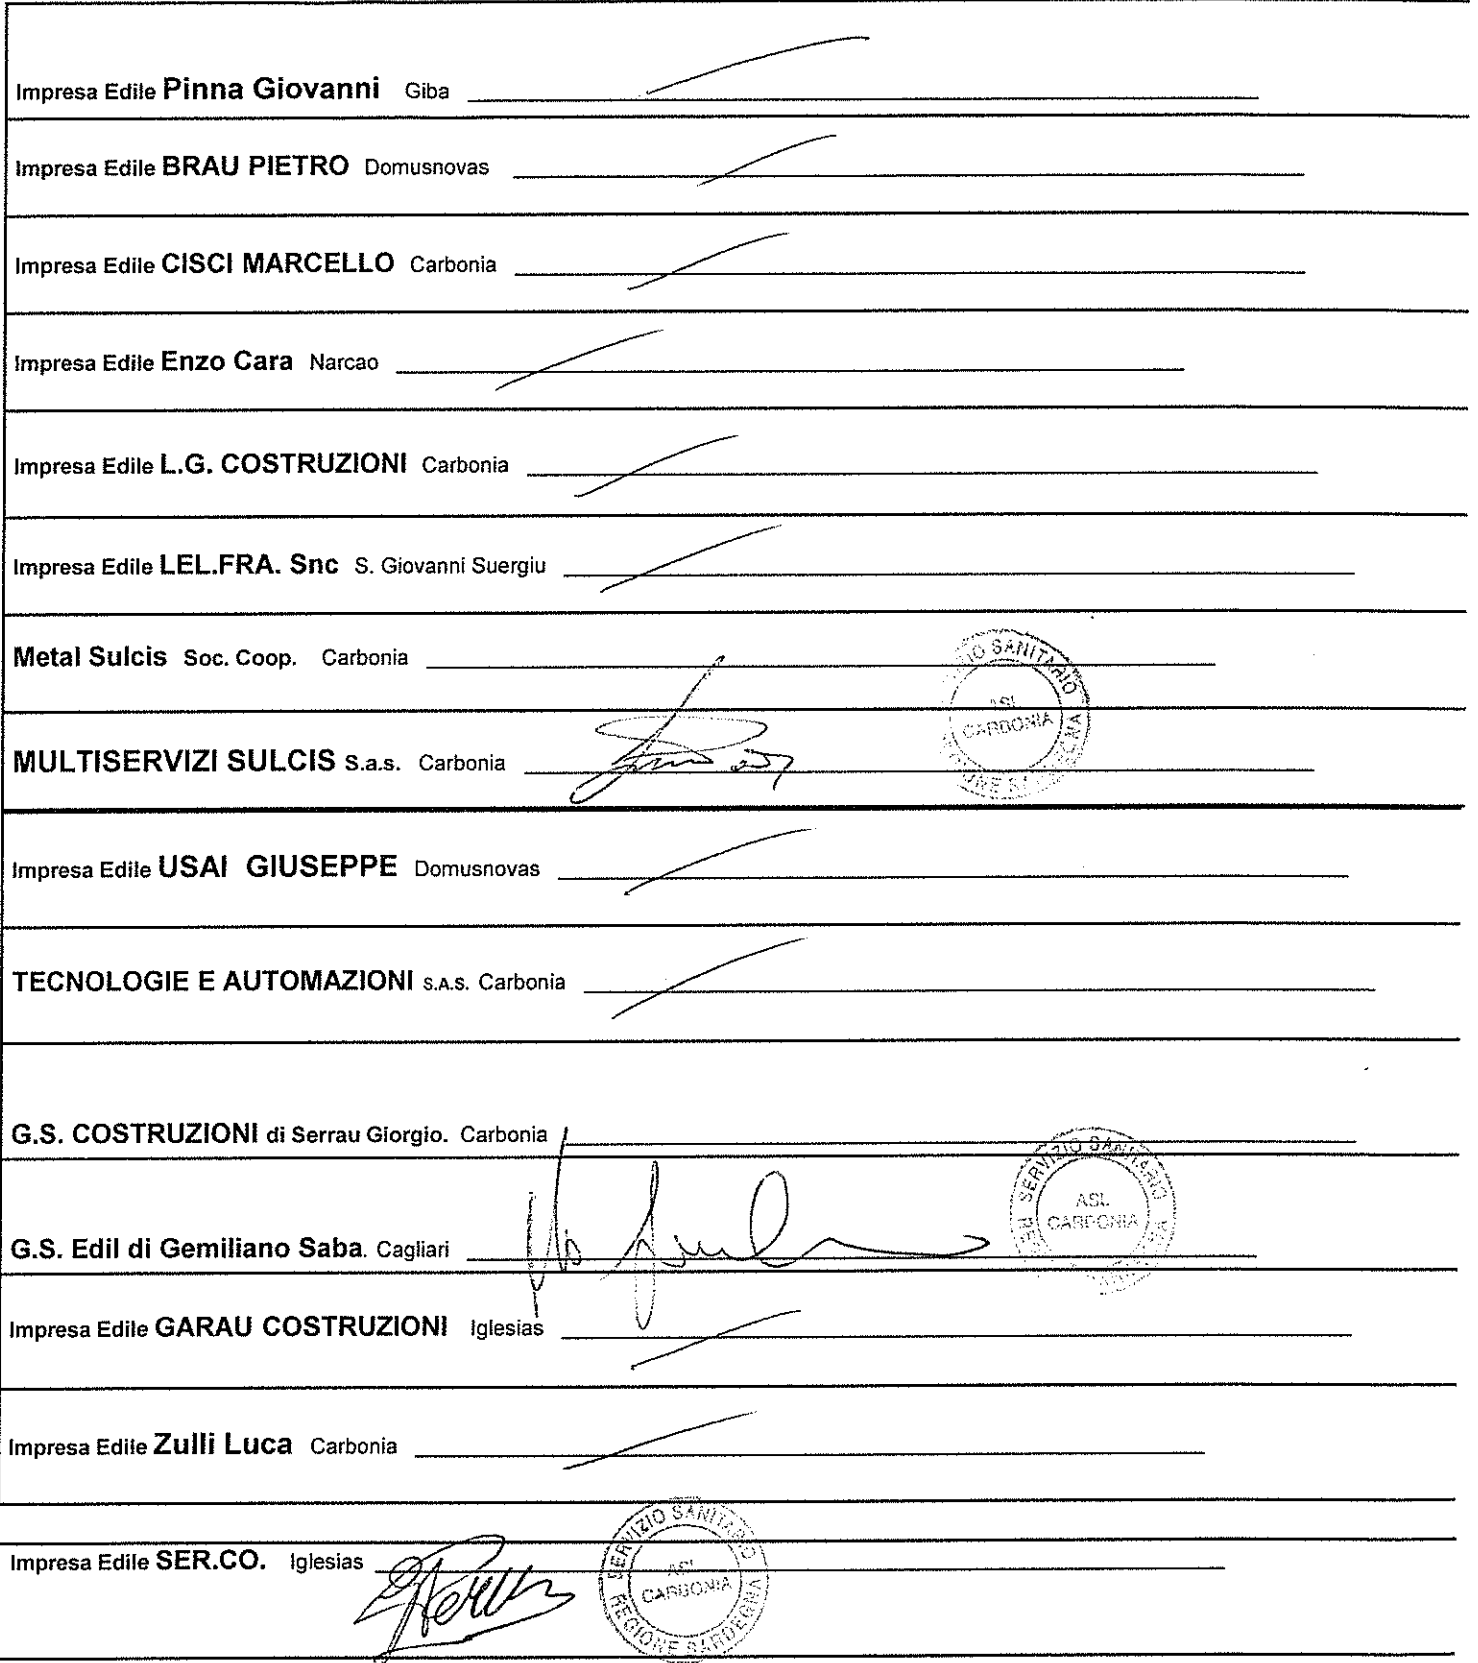 Impresa Edile Pinna Giovanni Giba
Impresa Edile BRAU PIETRO Domusnovas
Impresa Edile CISCI MARCELLO Carbonia
Impresa Edile Enzo Cara Narcao
Impresa Edile L.G. COSTRUZIONI Carbonia
Impresa Edile LEL.FRA. Snc S. Giovanni Suergiu
Metal Sulcis Soc. Coop. Carbonia
SANITARIO
ASL
CARBONIA
MULTISERVIZI SULCIS S.a.s. Carbonia
Impresa Edile USAI GIUSEPPE Domusnovas
TECNOLOGIE E AUTOMAZIONI S.A.S. Carbonia
G.S. COSTRUZIONI di Serrau Giorgio. Carbonia
SERVIZIO SANITARIO
ASL
CARBONIA
G.S. Edil di Gemiliano Saba. Cagliari
Impresa Edile GARAU COSTRUZIONI Iglesias
Impresa Edile Zulli Luca Carbonia
SERVIZIO SANITARIO
ASL
CARBONIA
REGIONE SARDEGNA
Impresa Edile SER.CO. Iglesias